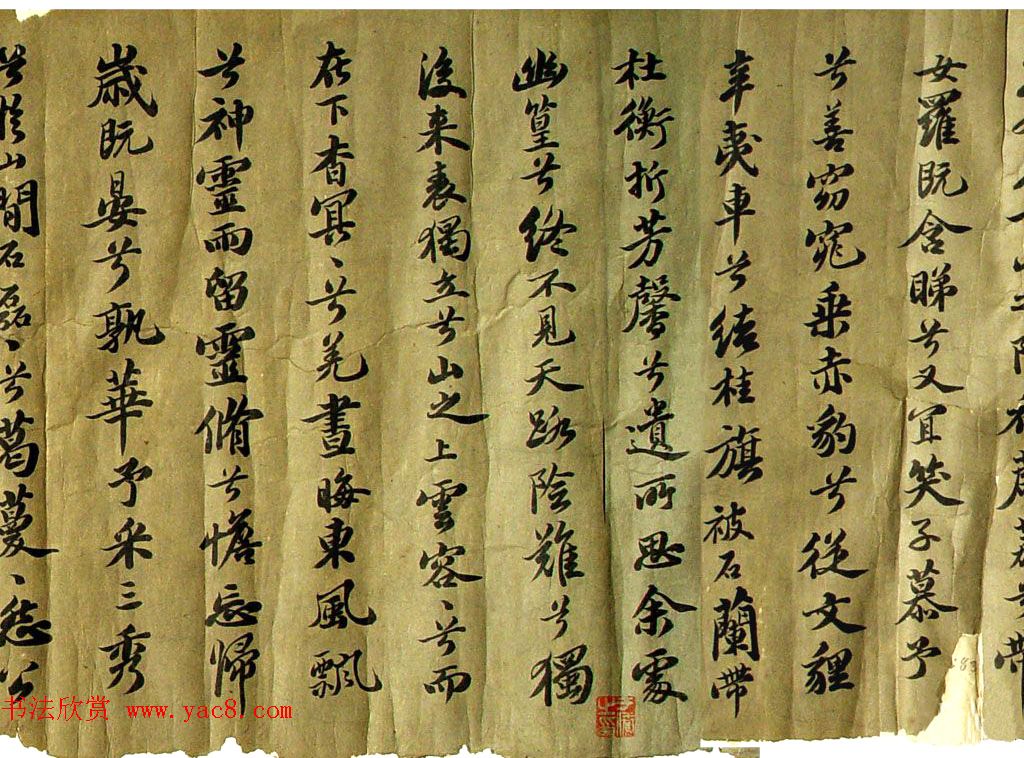 山之阿被薜荔兮帶
女羅既含睇兮又宜笑子慕予
兮善窈窕乘赤豹兮從文貍
辛夷車兮結桂旗被石蘭帶
杜衡折芳馨兮遺所思余處
幽篁兮終不見天路險難兮獨
後來表獨立兮山之上雲容〻兮而
在下杳冥〻兮羌晝晦東風飄
兮神靈雨留靈脩兮憺忘歸
歲既晏兮孰華予采三秀
兮於山間石磊〻兮葛蔓〻怨公
书法欣赏 www.yac8.com